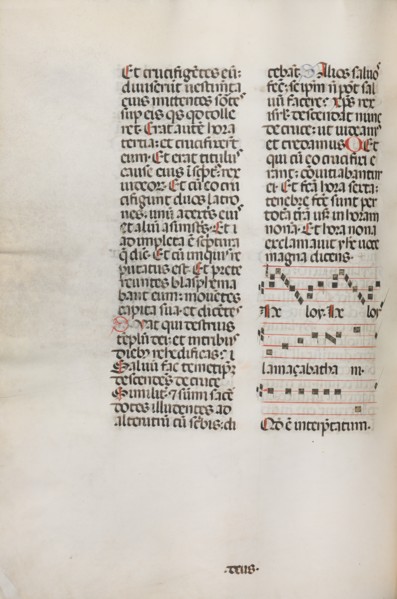 Et crucifigẽtes eũ:
diviserũt vestimẽta
eius mittentes sortẽ
sup eis qs qd tolle
ret. Erat autẽ hora
tertia: et crucifixerũt
eum. Et erat titulus
cause eius
iudeor. Et cũ eo cru
cifigunt duos latro
nes. unũ a dextris eius
et aliũ a sinistris. Et
adimpleta ẽ scriptura
q dic. Et cũ iniquis re
putatus est. Et prete
reuntes blasphema
bant eum: mouẽtes
capita sua et dicẽtes
Vat qui destruis
tẽplũ dei: et in tribus
dieb reedificas:
Saluũ fac temetipm
descendẽs de cruce
Similit 7 sũmi sacer
dotes illudentes ad
alterutrũ cũ scribis: di
cebãt. Alios saluos
fec: seipm nõ pot sal
uũ facere: Xps rex
isrl descendat nunc
de cruce: ut uideam
et credamus. Et
qui cũ eo crucifixi e
rant: cõuitiabantur
ei. Et fca hora sexta:
tenebre fce sunt per
totã trã usq in horam
nonã. Et hora nona
exclamauit yhs uoce
magna dicens.
loy
loy
lamaçabatha ni.
Qd ẽ interptatum.